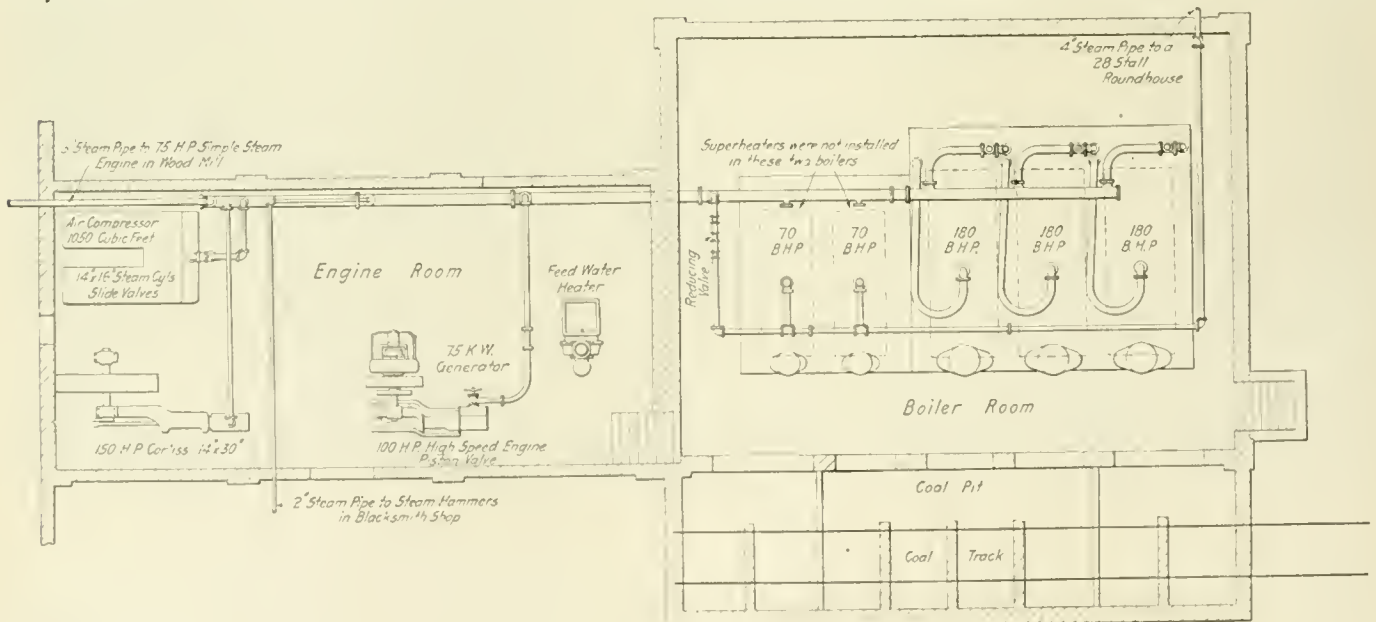 4" Steam Pipe to a
28 Stall
Roundhouse
Steam Pipe to 75 H.P. Simple Steam
Engine in Wood Mill
Superheaters were not installed
in these two boilers
Air Compressor
1050 Cubic Feet
14"x16" Steam Cyl's
Slide Valves
Engine Room
Feed Water
Heater
75 K.W.
Generator
Reducing
Valve
70
B.H.P.
70
B.H.P.
180
B.H.P.
180
B.H.P.
180
B.H.P.
Boiler Room
150 H.P. Corliss 14"x30"
100 H.P. High Speed Engine
Piston Valve
2" Steam Pipe to Steam Hammers
in Blacksmith Shop
Coal Pit
Coal Track